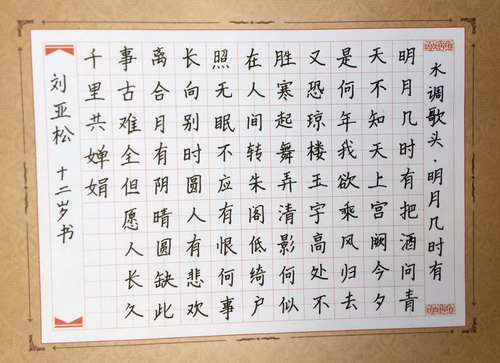 水调歌头·明月几时有
明月几时有把酒问青
天不知天上宫阙今夕
是何年我欲乘风归去
又恐琼楼玉宇高处不
胜寒起舞弄清影何似
在人间转朱阁低绮户
照无眠不应有恨何事
长向别时圆人有悲欢
离合月有阴晴圆缺此
事古难全但愿人长久
千里共婵娟
刘亚松 十二岁书